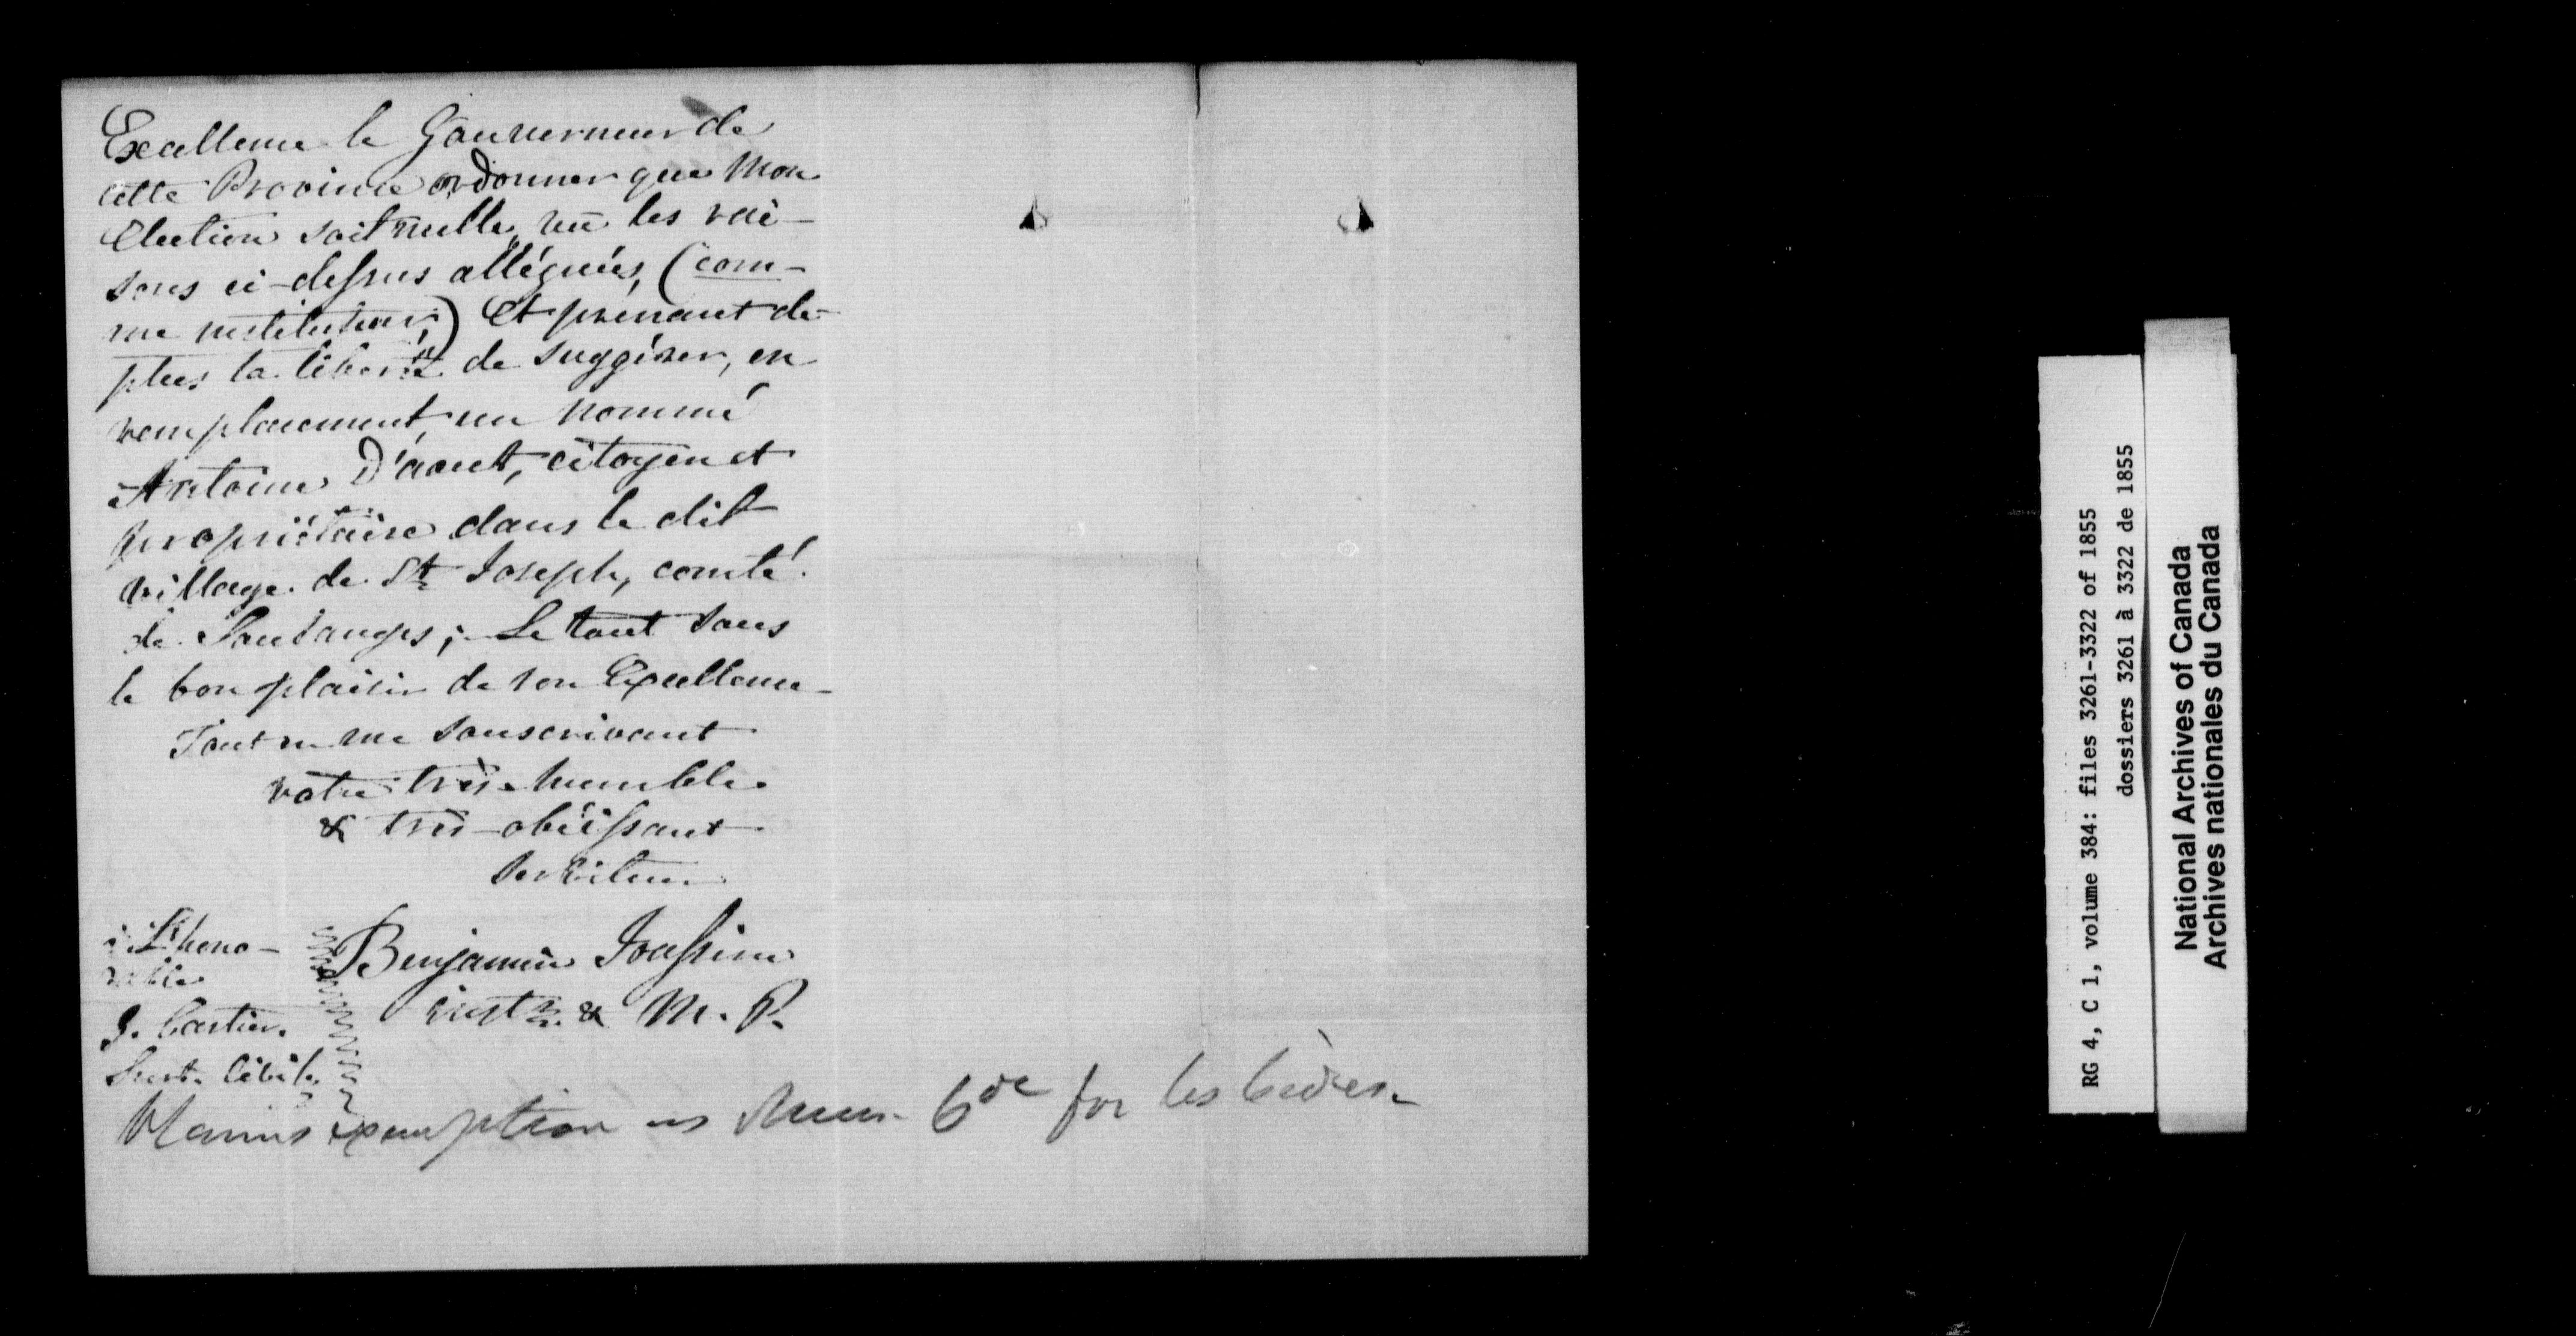 Excellence le Gouverneur de
cette Province ordonner que Mon
Election soit nulle, vu les rai-
sons ci-dessus alléguées, (com-
me instituteur,) Et prenant de
plus la liberté de suggérer, en
remplacement, un nommé
Antoine D'aout, citoyen et
propriétaire dans le dit
village de St Joseph, comté
de Soulanges; Le tout sous
le bon plaisir de son Excellence
Tout en me souscrivant
votre très-humble
& très-obéissant
serviteur
Benjamin Joassim
instr. & M. P.
à L'hono-
rable
G. Cartier.
Secrt. Civil.
exemption as
for les
RG 4, C 1, volume 384: files 3261-3322 of 1855
dossiers 3261 à 3322 de 1855
National Archives of Canada
Archives nationales du Canada